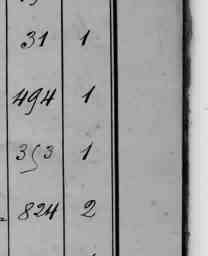 31 1
494 1
353 1
824 2